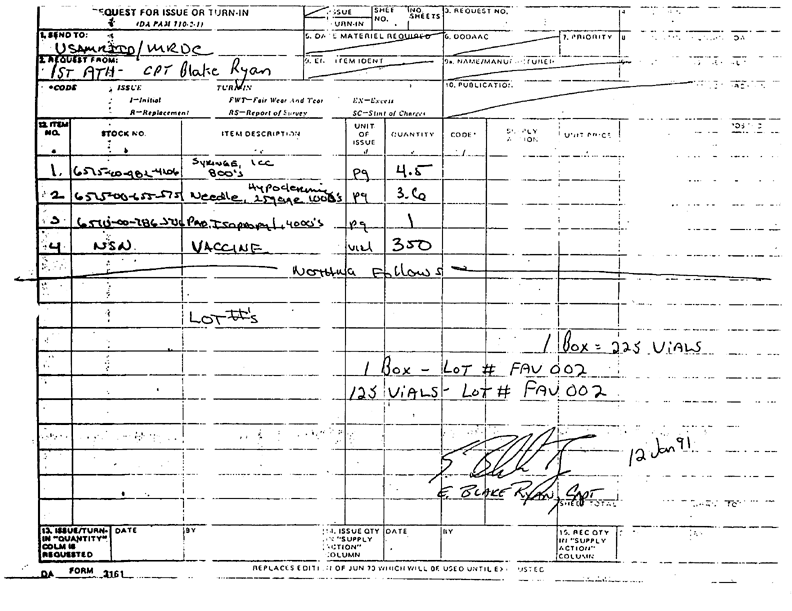 REQUEST FOR ISSUE OR TURN-IN
(DA PAM 710-2-1)
ISSUE
TURN-IN
SHEET NO.
NO. SHEETS
3. REQUEST NO.
1. SEND TO:
USAMRIID/MRDC
5. DATE MATERIEL REQUIRED
6. DODAAC
7. PRIORITY
2. REQUEST FROM:
1ST ATH- CPT Blake Ryan
ITEM IDENT
9a. NAME/MANUFACTURER
*CODE
ISSUE
TURN-IN
10. PUBLICATION
I-Initial
FWT-Fair Wear And Tear
EX-Excess
R-Replacement
RS-Report of Survey
SC-Stmt of Charges
12. ITEM NO.
STOCK NO.
ITEM DESCRIPTION
UNIT OF ISSUE
QUANTITY
CODE*
SUPPLY ACTION
UNIT PRICE
1. SYRINGE, 1CC 800's pg 4.5
2 Needle, Hypodermic 25gauge 1000's pg 3.6
3 Pad, Isopropyl, 4000's pg 1
4 NSN VACCINE vial 350
Nothing Follows
LOT #'s
1 Box = 225 VIALS
1 Box - LOT # FAV 002
125 VIALS - LOT # FAV 002
12 Jan 91
E. BLAKE RYAN, CPT
SHEET TOTAL
13. ISSUE/TURN-IN "QUANTITY" COLM IS REQUESTED
DATE
BY
14. ISSUE QTY IN "SUPPLY ACTION" COLUMN
DATE
BY
15. REC QTY IN "SUPPLY ACTION" COLUMN
DA FORM 3161
REPLACES EDITION OF JUN 73 WHICH WILL BE USED UNTIL EXHAUSTED